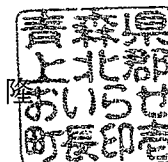 青森県
上北郡
おいらせ
町長印壱
隆